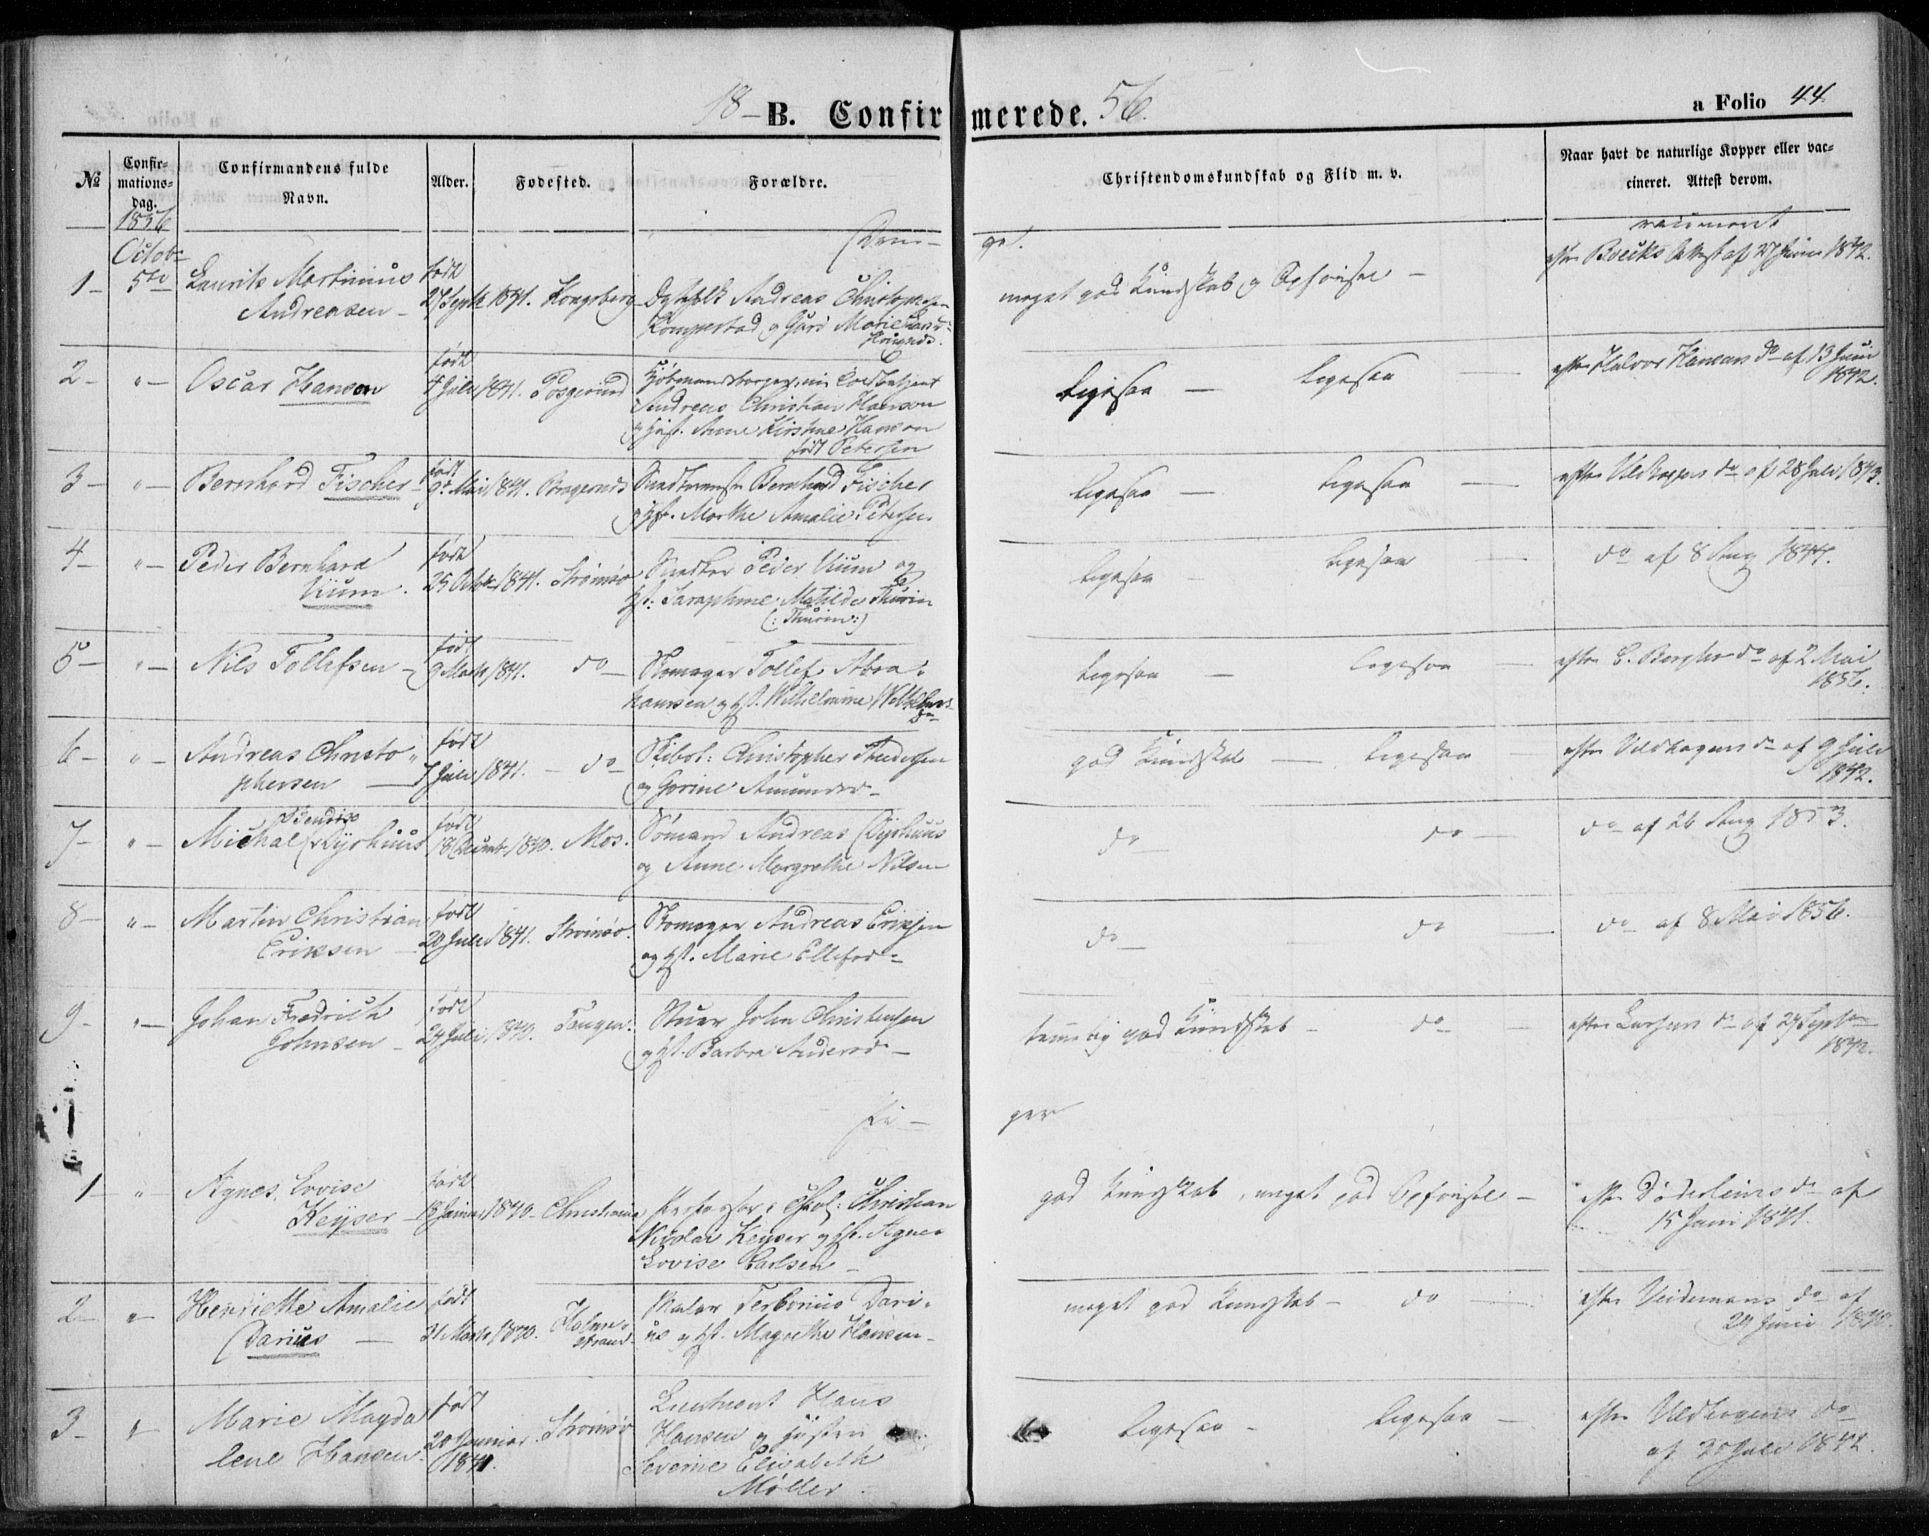 18 – B. Confirmerede. 56.
a Folio 44
№
Confirmations-dag.
Confirmandens fulde Navn.
Alder.
Fodested.
Forældre.
Christendomskundskab og Flid m. v.
Naar havt de naturlige Kopper eller vaccineret. Attest derom.
1856
Octob
1 – 5te Laurits Martinius
Andreasen –
født
1841. Kongsberg
Andreas Christophersen
Marie
meget god Kundskab og Opførsel –
vaccineret
efter Boecks Attest af 1842.
2 – " – Oscar Hansen
født
Juli 1841. Porsgrund
Andreas Christian Hansen
Anne Kirstine Hansen
født Petersen
Ligesaa – Ligesaa –
efter Halvor Hansens do af 13 Juni
1842.
3 – " – Bernhard Fischer
født
9de Mai 1841. Bragernæs
Bernhard Fischer
Marthe Amalie Petersen
Ligesaa – Ligesaa –
do af 28 Juli 1843.
4 – " – Peder Bernhard
Uum.
født
25 Octob 1841. Strømsø
Snedker Peder Uum og
Hst: Saraphine Matilde Thurin
(: Thurin :)
Ligesaa – Ligesaa –
do af 8 Aug 1844.
5 – " – Nils Tollefsen –
født
9 Marts 1841. do –
Skomager Tollef Abra-
hamsen og Hst. Wilhelmine
Ligesaa – Ligesaa –
efter do af 2 Mai
1856.
6 – " – Andreas Christo
phersen –
født
7 Juli 1841. – do –
Christopher Andersen
og Gorine Amundsd –
god Kundskab – Ligesaa –
efter Uldhagens do af 9 Juli
1842.
7 – " – Bendix
Michael Dyrhuus
født
18 Decemb. 1840. Mos.
Sømand Andreas Dyrhuus
og Anne Margrethe Nilsen
do – do –
do af 26 Aug 1853.
8 – " – Martin Christian
Eriksen –
født
20 Juli 1841. Strømsø.
Skomager Andreas Eriksen
og Hst. Marie Ellefsd –
do – do –
do af 8 Mai 1856.
9 – " – Johan Fredrich
Johnsen –
født
24 Juli 1840. Tangen.
Stuer John Christensen
og Hst. Barbra Andersd –
temmelig god Kundskab – do –
efter Larsens do af 27 Septbr
1842.
Pi –
ger
1 – " Agnes Lovise
Keyser –
født
18 Januar 1840 – Christiania
Professor Christian
Nicolai Keyser og Hst. Agnes
Lovise Carlsen –
god Kundskab, meget god Opførsel –
efter Døderleins do af
15 Juni 1841.
2 – " Henriette Amalie
Darius –
født
31 Marts 1840. Holme-
strand –
Maler Darius
og Hst. Magrethe Hansen –
meget god Kundskab – do –
efter Veidemans do af
24 Juni 1840.
3 – " Marie Magda
lene Hansen
født
20 Januar
1841. Strømsø
Lieutnant Hans
Hansen og Hustru
Severine Elisabeth
Møller –
Ligesaa – Ligesaa –
efter Uldhagens do
af Juli 1842.